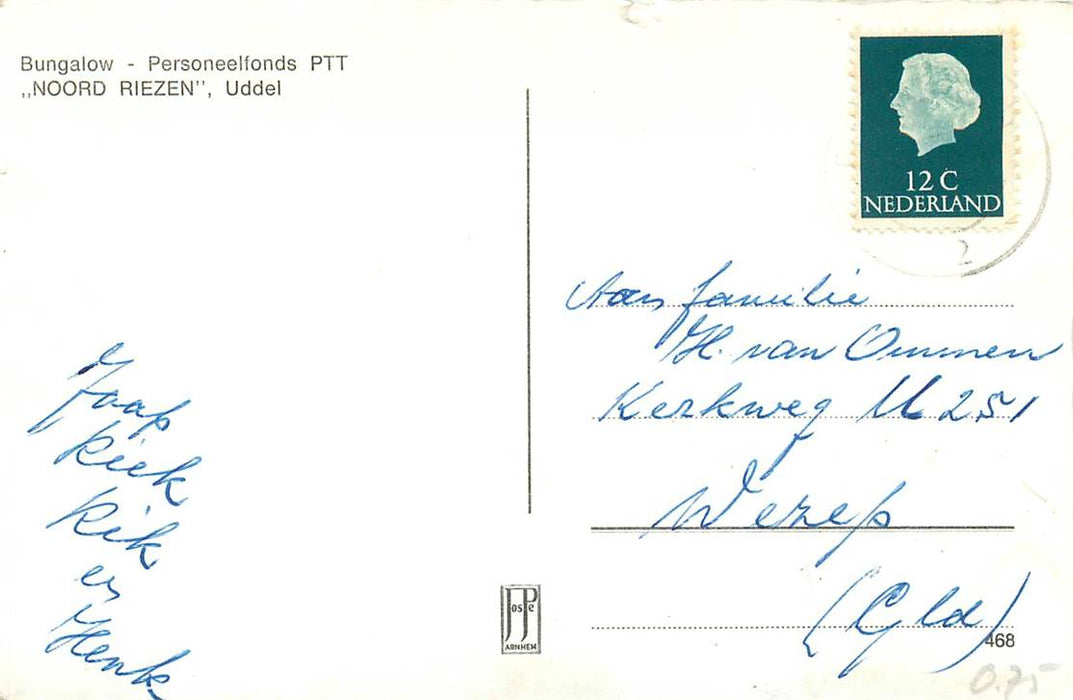 Bungalow - Personeelfonds PTT
„NOORD RIEZEN", Uddel
12 C
NEDERLAND
2
Aan familie
H. van Ommen
Kerkweg M 251
Wezep
(Gld)
Jaap
Kiek
Rik
en
Henk
JosPe
ARNHEM
468
0.75